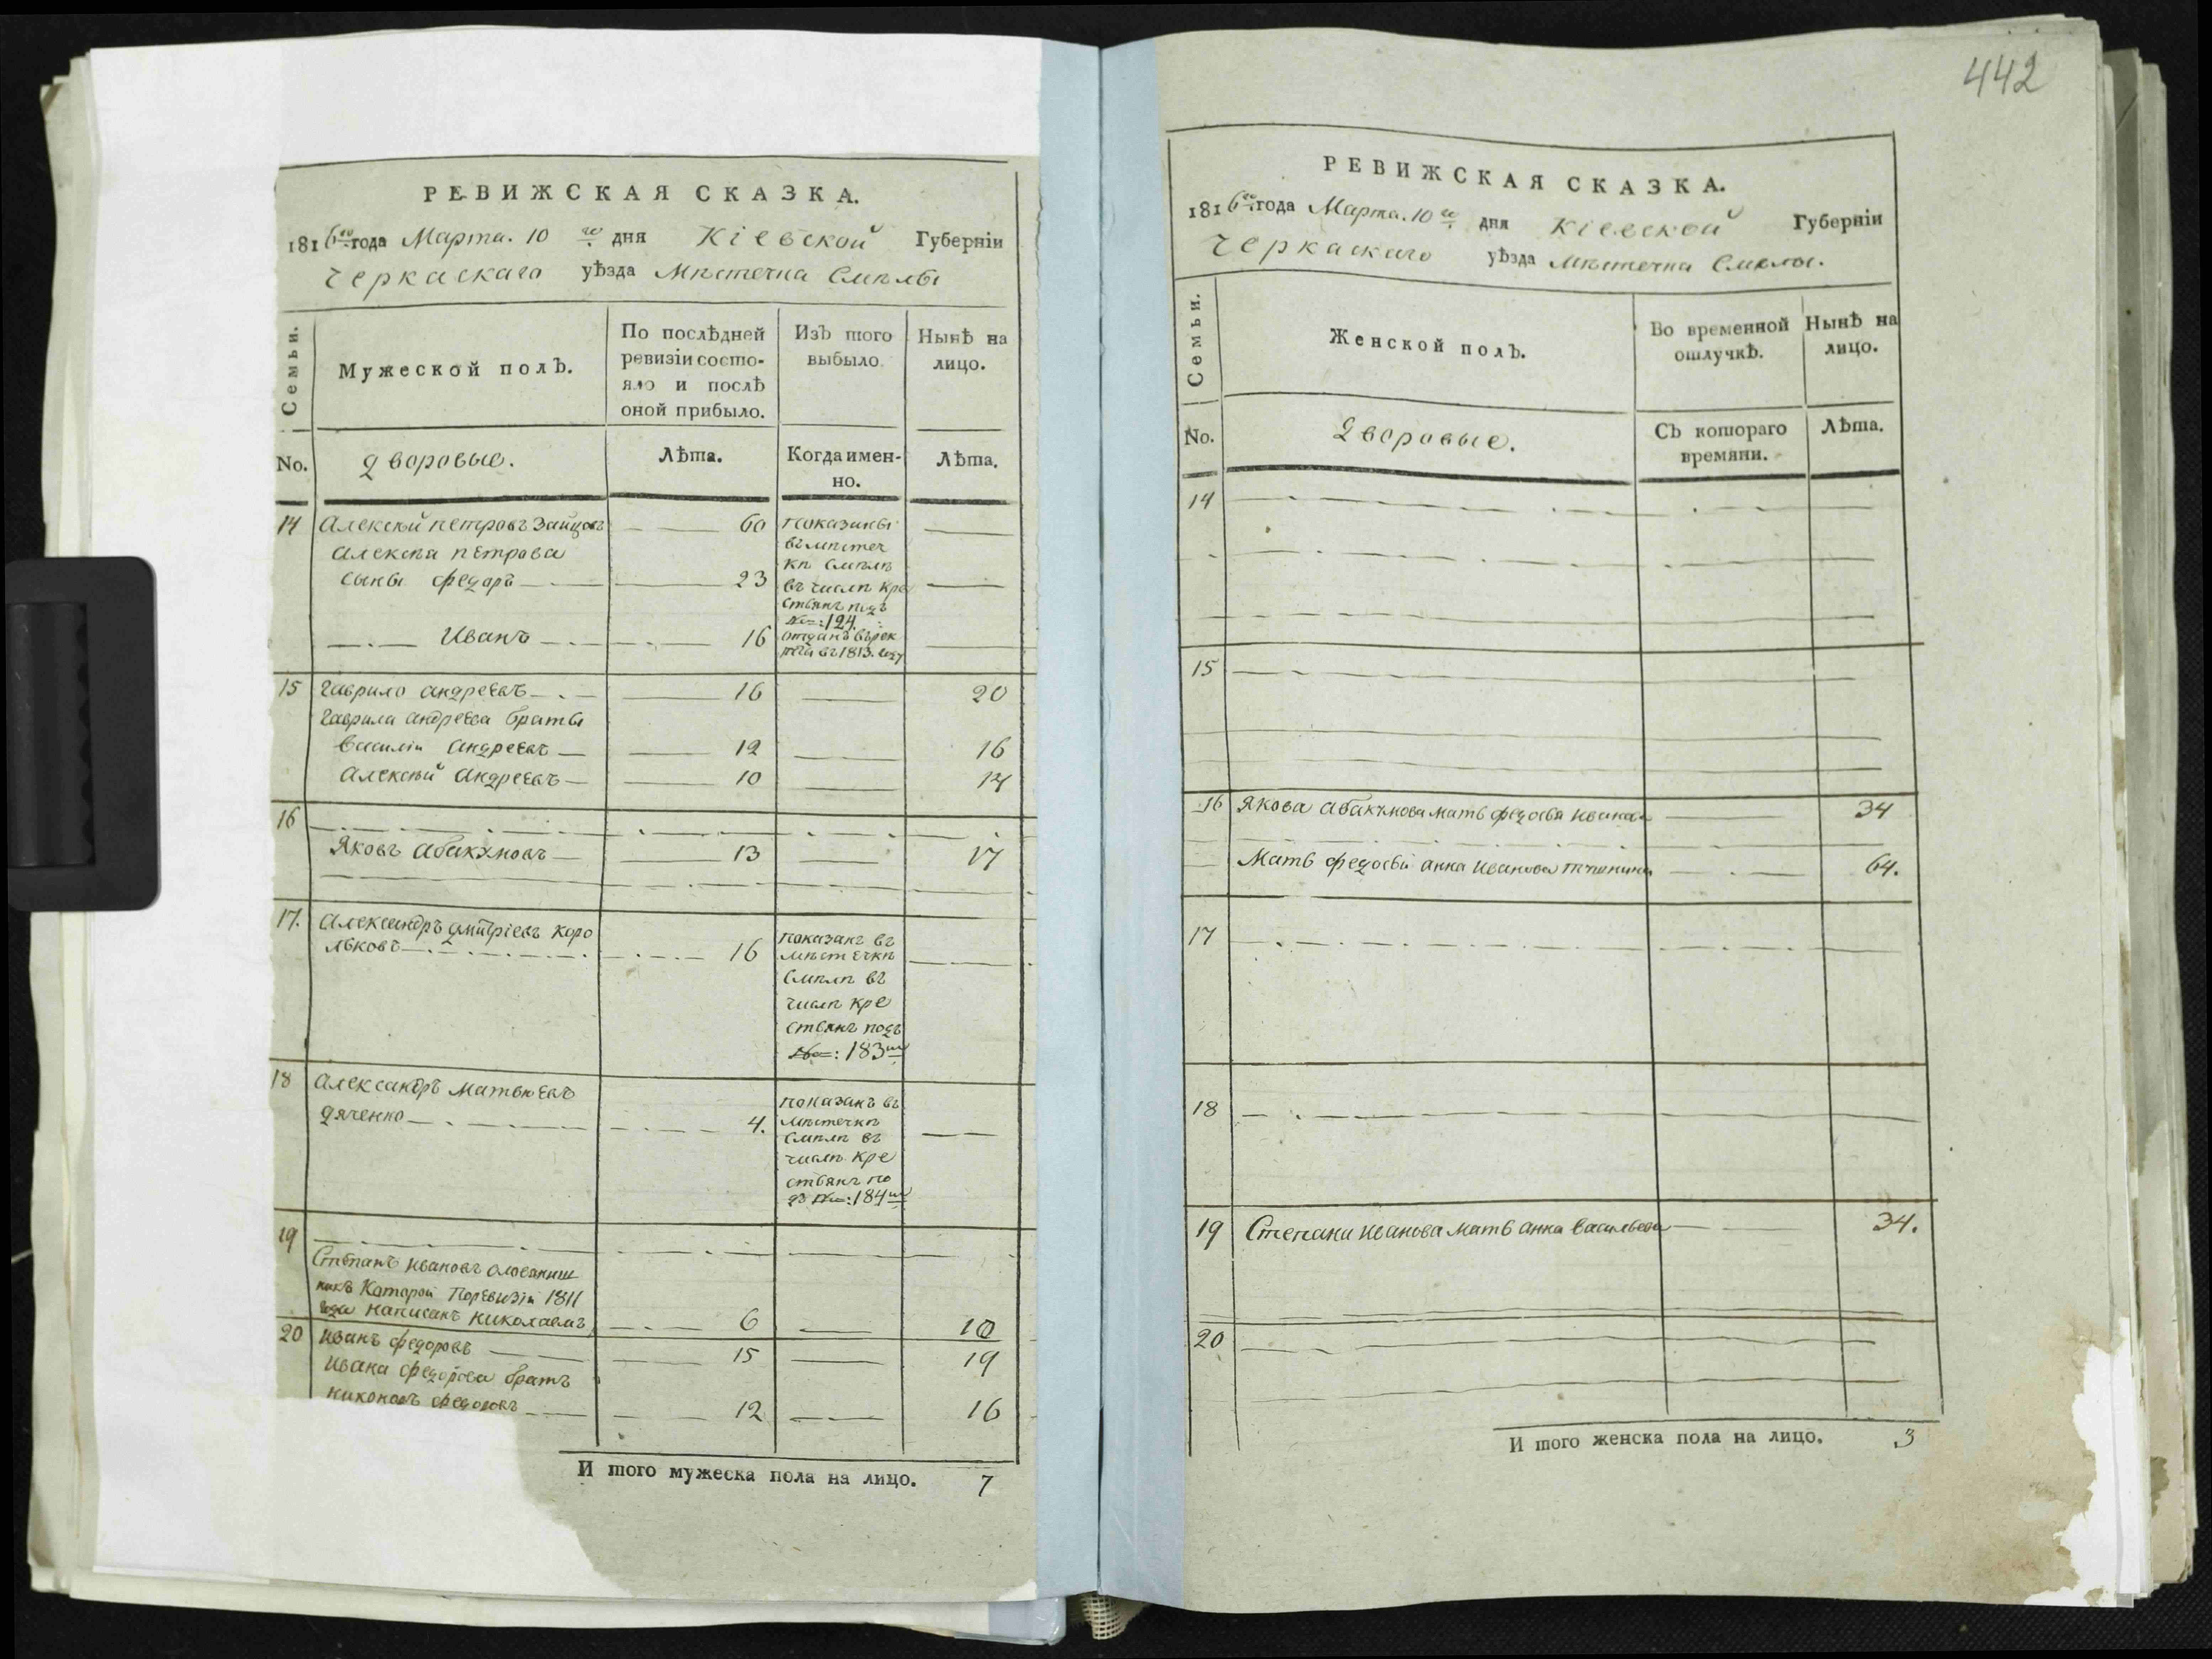 442
РЕВИЖСКАЯ СКАЗКА.
1816го года Марта. 10го дня Кіевской Губерніи
Черкаскаго уѣзда Мѣстечка Смѣлы
Семьи.
Мужеской полЪ.
По послѣдней ревизіи состо-
яло и послѣ
оной прибыло.
ИзЪ того
выбыло.
НынѢ на
лицо.
No.
дворовые.
Лѣта.
Когда имен-
но.
Лѣта.
14 Алексѣй петровъ Зайцовъ 60 показаны
Алексѣя петрова въ мѣстеч
кѣ Смѣлѣ
сыны федоръ 23 въ числѣ кре
стьянъ подъ
№: 124.
Иванъ 16 отданъ въ рек
руты въ 1813. году
15 Гаврило андреевъ 16 20
Гаврила андреева братьи
Василій Андреевъ 12 16
Алексѣй Андреевъ 10 14
16
Яковъ Абакумовъ 13 17
17. Александръ дмитріевъ коро
льковъ 16 показанъ въ
мѣстечкѣ
Смѣлѣ въ
числѣ кре
стьянъ подъ
№: 183мъ
18 Александръ Матвѣевъ
дяченко 4. показанъ въ
мѣстечкѣ
Смѣлѣ въ
числѣ кре
стьянъ по
дъ №: 184мъ
19
Степанъ Ивановъ
Которой По ревизіи 1811
года написанъ николаемъ 6 10
20 Иванъ федоровъ 15 19
Ивана федорова братъ
никоноръ федоровъ 12 16
И того мужеска пола на лицо. 7
РЕВИЖСКАЯ СКАЗКА.
1816го года Марта. 10го дня Кіевской Губерніи
Черкаскаго уѣзда Мѣстечка Смѣлы.
Семьи.
Женской полЪ.
Во временной
отлучкѢ.
НынѢ на
лицо.
No.
Дворовые.
СЪ котораго
времяни.
Лѣта.
14
15
16 Якова Абакумова мать федосья Ивана 34
Мать федосьи анна Иванова 64.
17
18
19 Степана Иванова мать анна васильева 34.
20
И того женска пола на лицо. 3